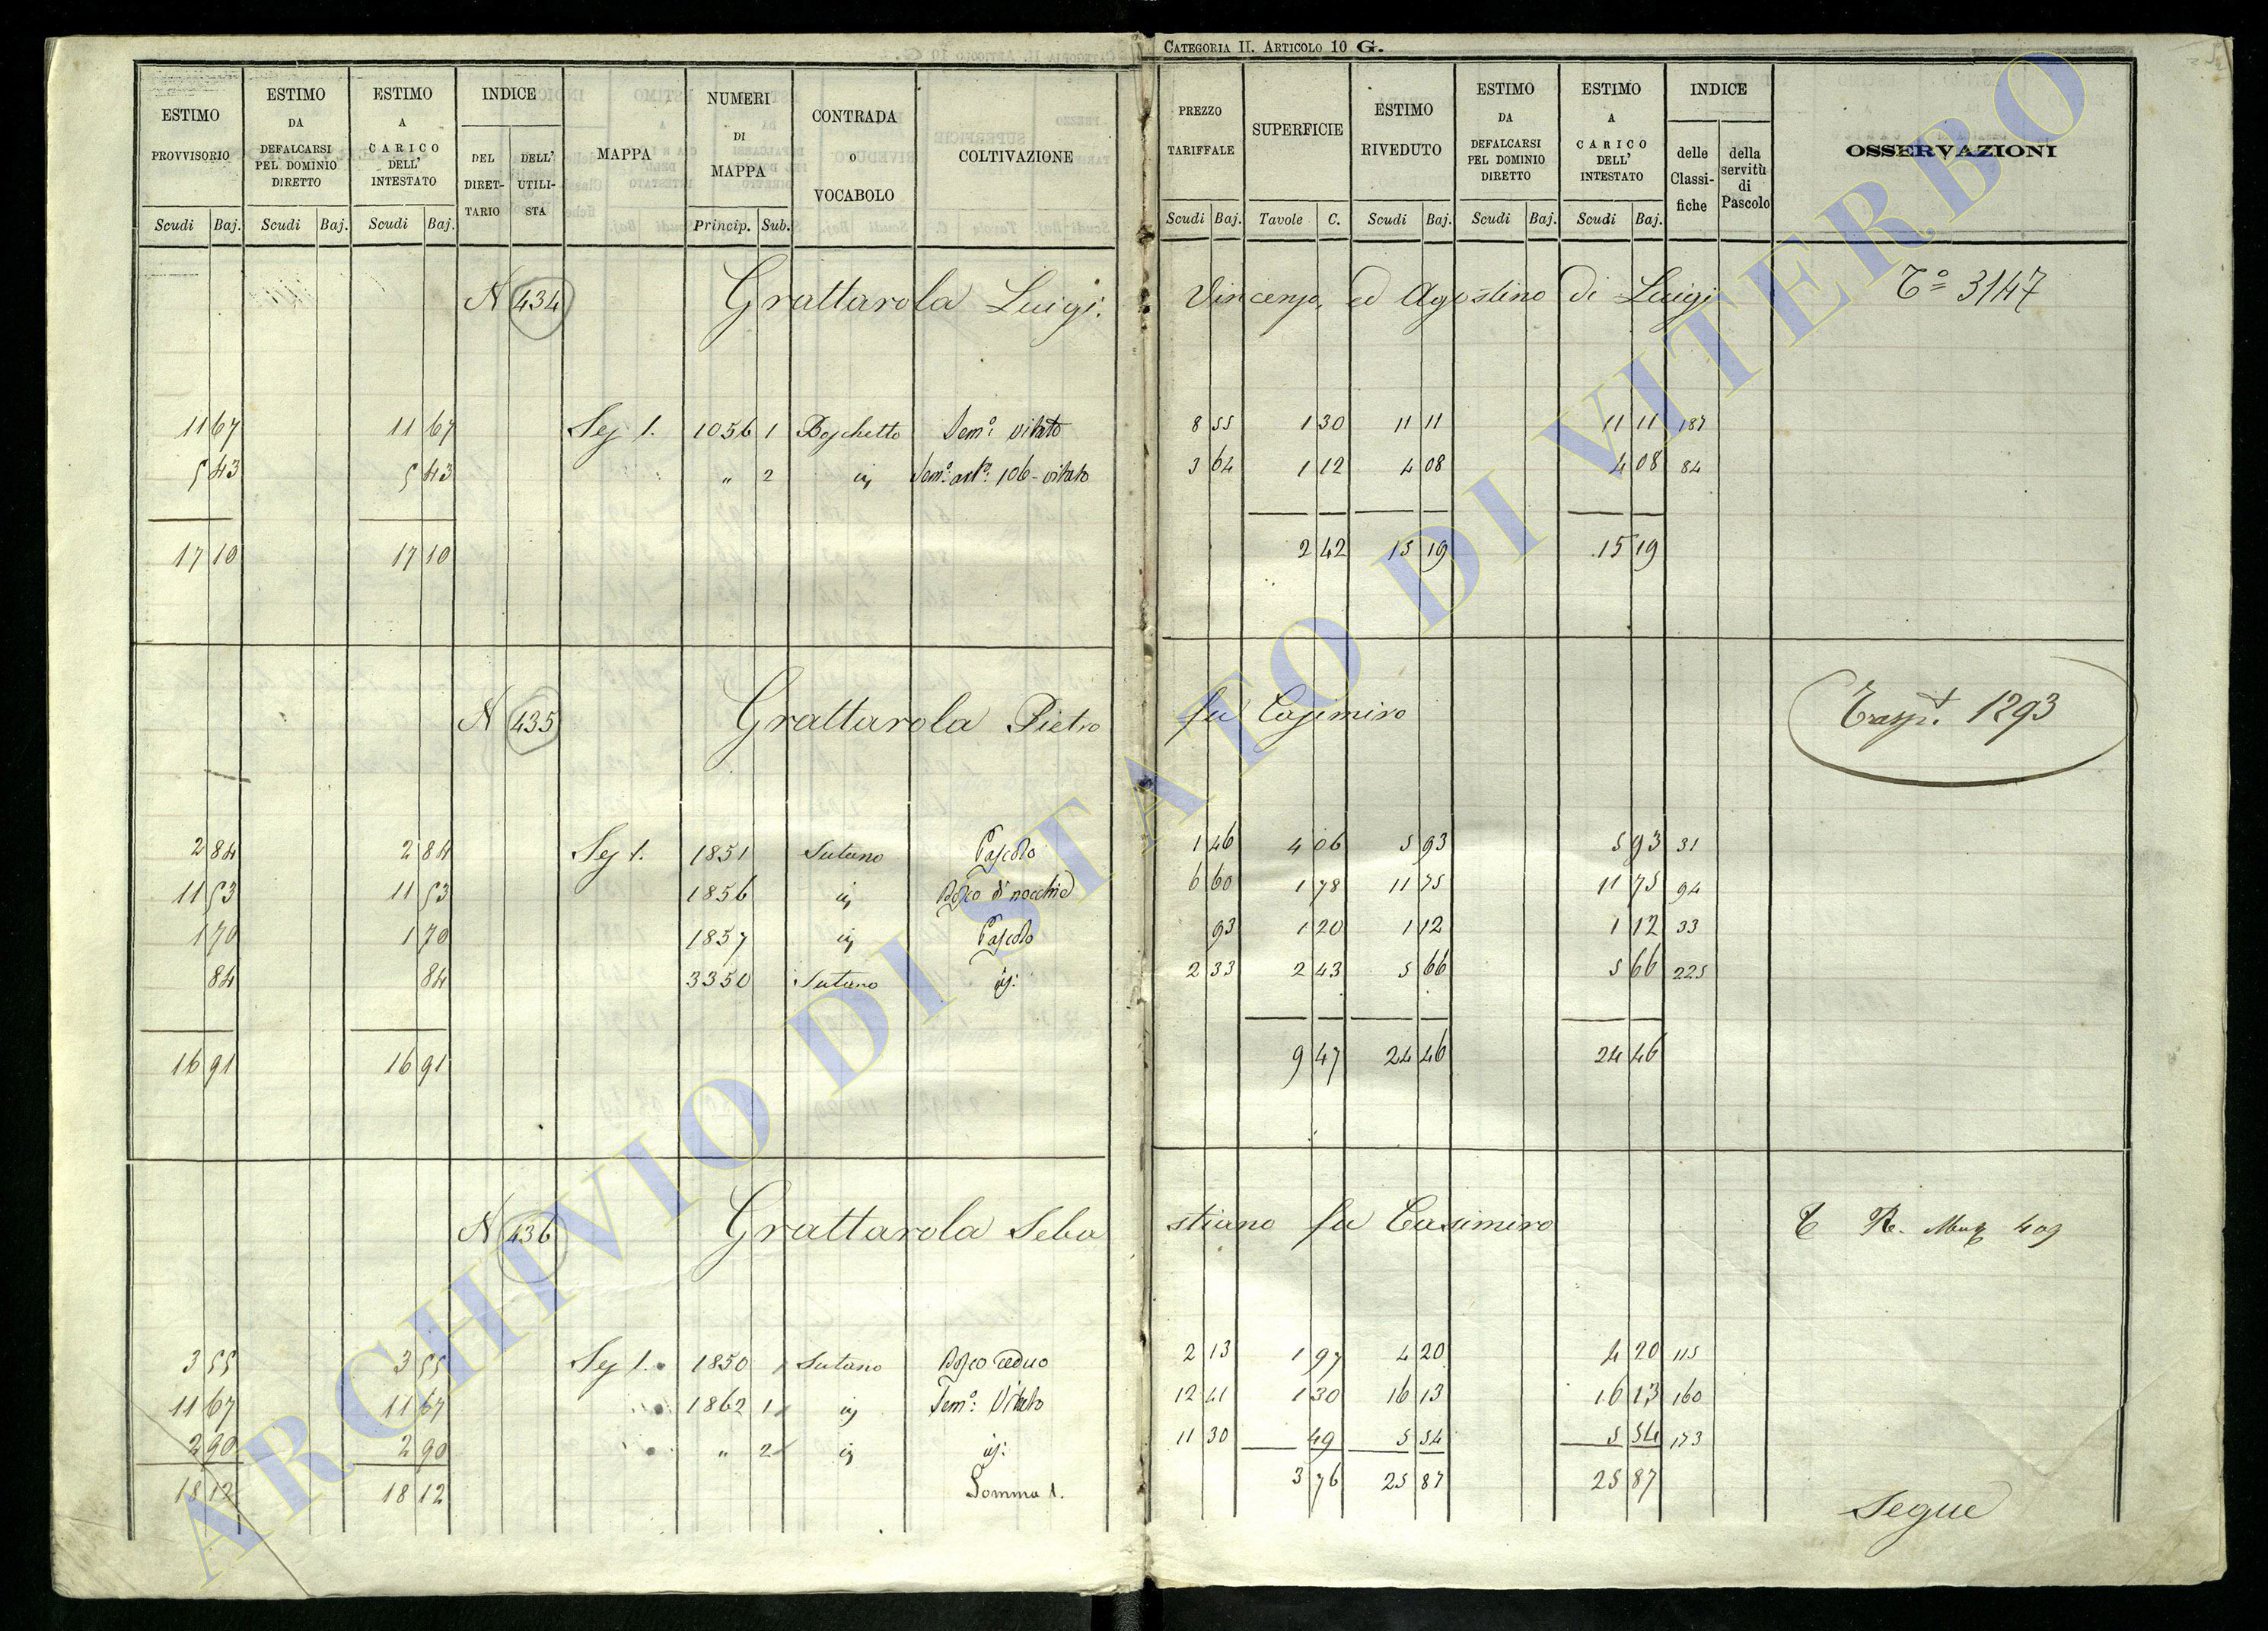 CATEGORIA II. ARTICOLO 10 G.
ESTIMO PROVVISORIO Scudi Baj.
ESTIMO DA DEFALCARSI PEL DOMINIO DIRETTO Scudi Baj.
ESTIMO A CARICO DELL' INTESTATO Scudi Baj.
INDICE DEL DIRETTARIO DELL' UTILISTA
MAPPA
NUMERI DI MAPPA Princip. Sub.
CONTRADA O VOCABOLO
COLTIVAZIONE
PREZZO TARIFFALE Scudi Baj.
SUPERFICIE Tavole C.
ESTIMO RIVEDUTO Scudi Baj.
ESTIMO DA DEFALCARSI PEL DOMINIO DIRETTO Scudi Baj.
ESTIMO A CARICO DELL' INTESTATO Scudi Baj.
INDICE delle Classifiche della servitù di Pascolo
OSSERVAZIONI
N 434 Grattarola Luigi. Vincenzo, ed Agostino di Luigi Tº 3147
11 67 11 67 Sez 1. 1056 1 Boschetto Semº: vitato 8 55 1 30 11 11 11 11 187
5 43 5 43 " 2 id. Semº: 106 - vitato 3 64 1 12 4 08 4 08 84
17 10 17 10 2 42 15 19 15 19
N 435 Grattarola Pietro fu Casimiro Trasp.t 1293
2 84 2 84 Sez 1. 1851 Sutano Pascolo 1 46 4 06 5 93 5 93 31
11 53 11 53 1856 id. Bosco di nocchie 6 60 1 78 11 75 11 75 94
1 70 1 70 1857 id. Pascolo 93 1 20 1 12 1 12 33
84 84 3350 Sutano id: 2 33 2 43 5 66 5 66 225
16 91 16 91 9 47 24 46 24 46
N 436 Grattarola Sebastiano fu Casimiro T R. 409
3 55 3 55 Sez 1. 1850 Sutano Bosco ceduo 2 13 1 97 4 20 4 20 115
11 67 11 67 1862 1 id. Semº: Vitato 12 41 1 30 16 13 16 13 160
2 90 2 90 " 2 id. id: 11 30 49 5 54 5 54 173
18 12 18 12 Somma 1. 3 76 25 87 25 87
Segue
ARCHIVIO DI STATO DI VITERBO